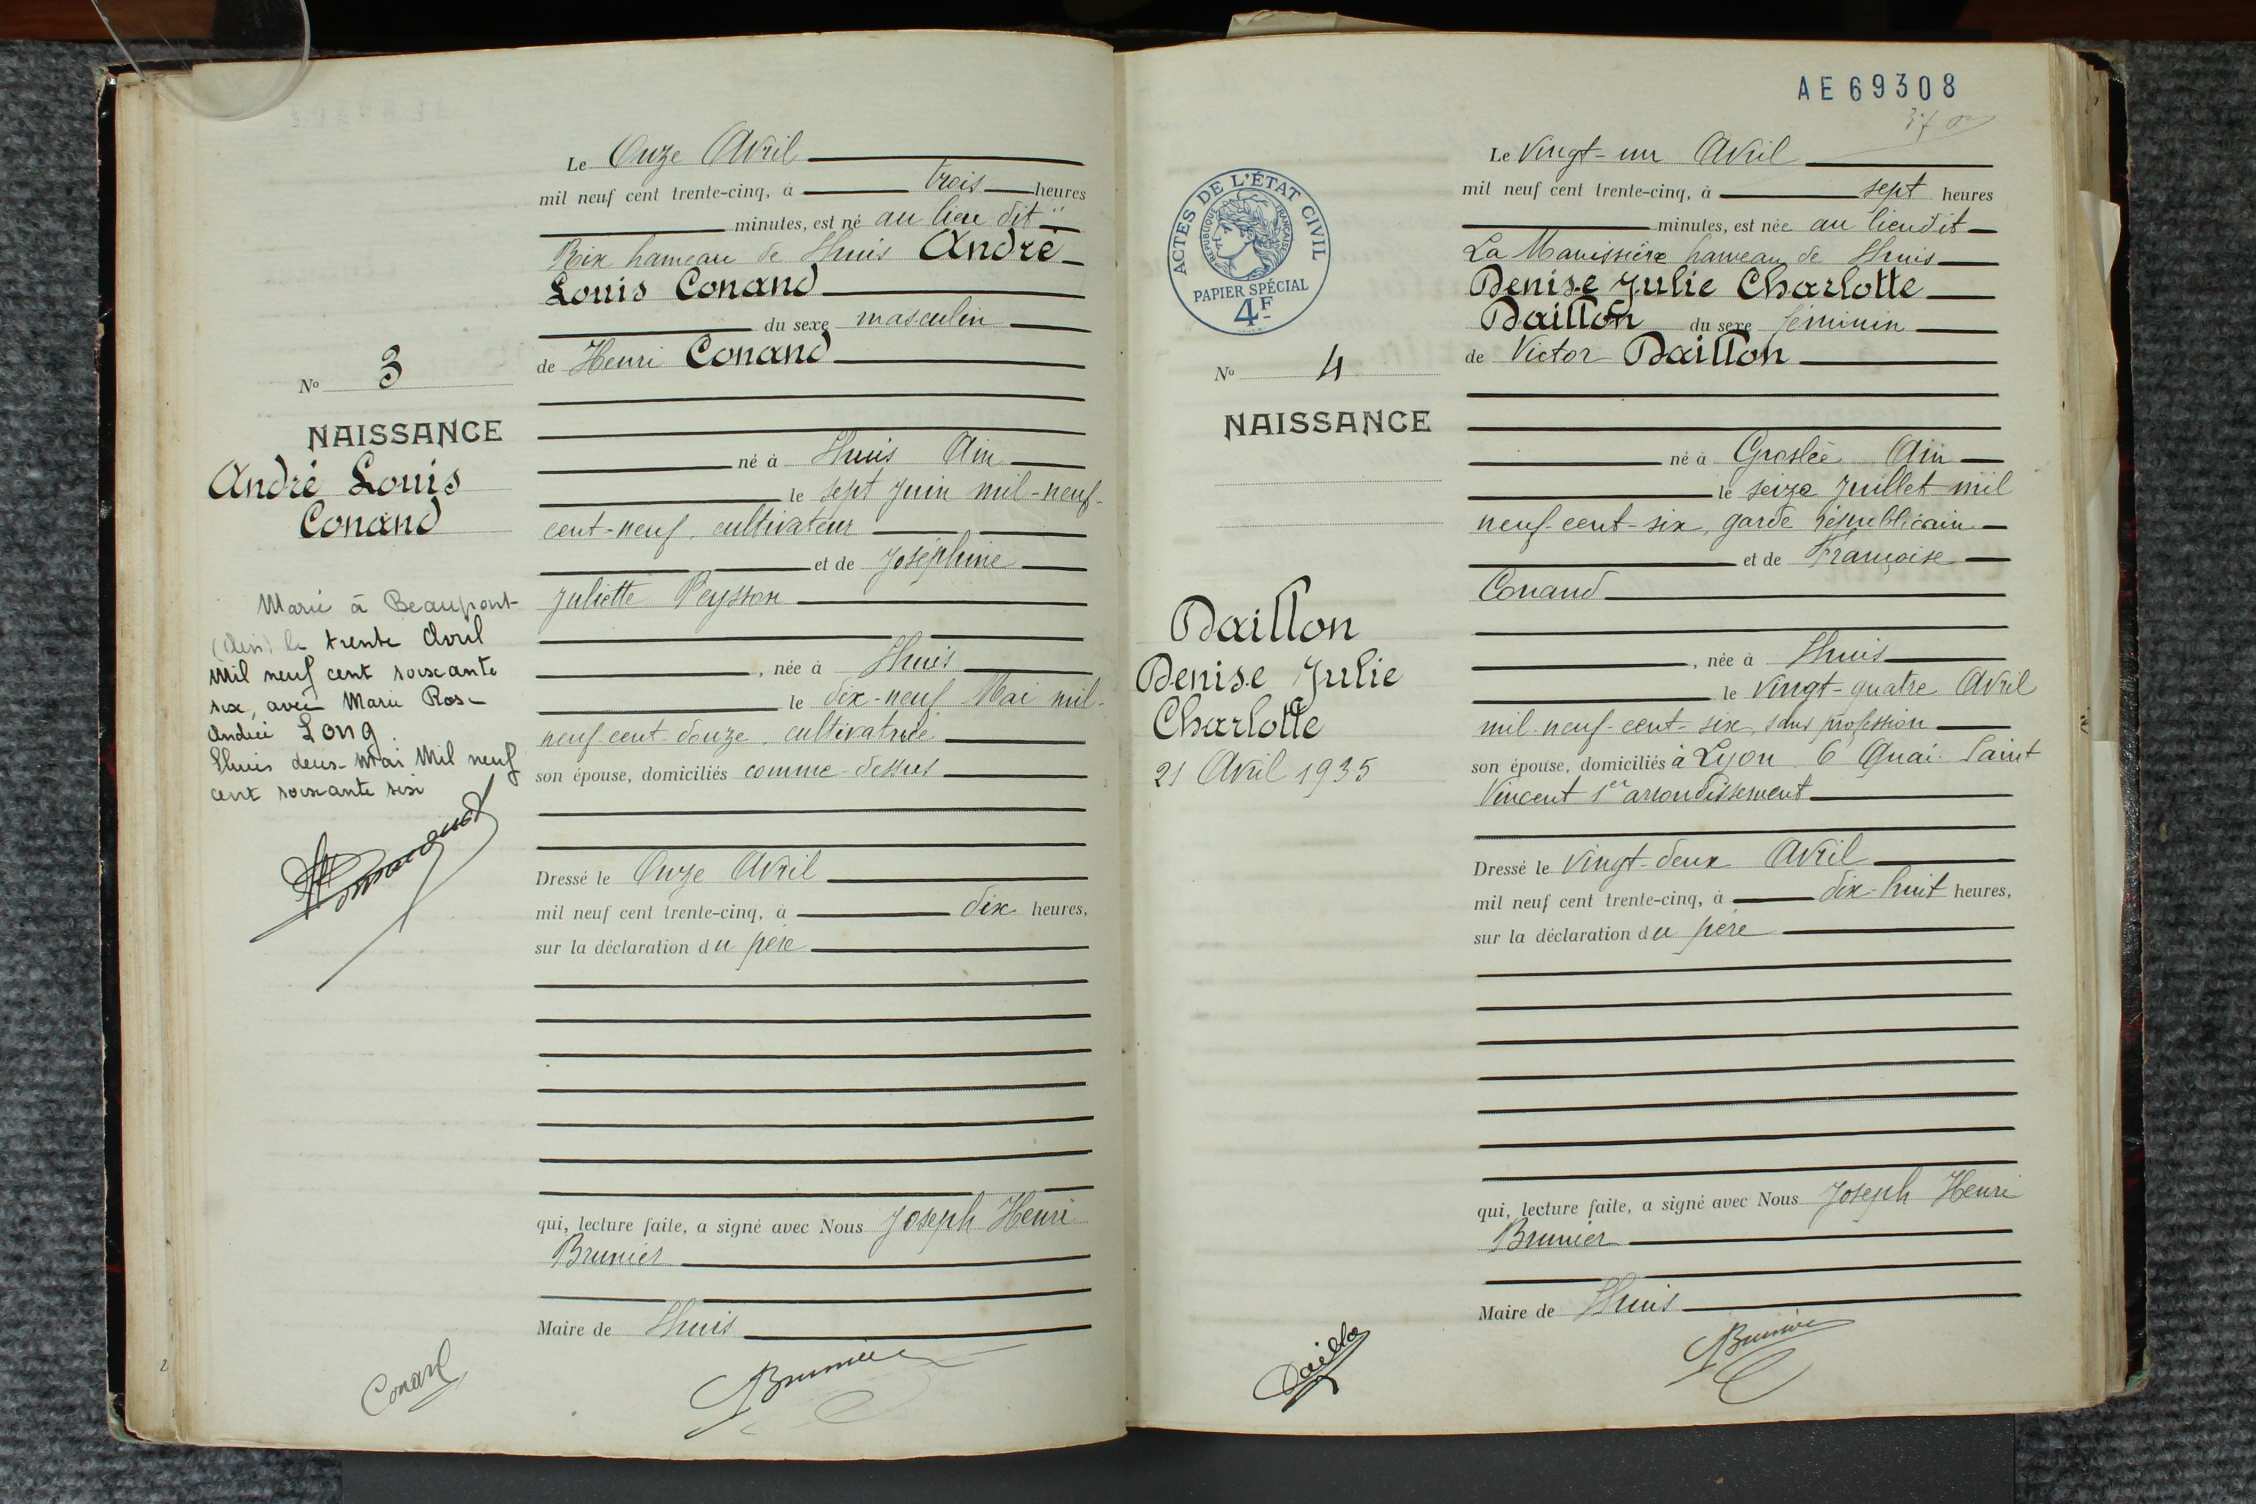 Le Onze Avril
mil neuf cent trente-cinq, à trois heures
minutes, est né au lieu dit "
Rix hameau de Lhuis André
Louis Conand
du sexe masculin
de Henri Conand
né à Lhuis Ain
le sept Juin mil-neuf-
cent-neuf, cultivateur
et de Joséphine
Juliette Peysson
, née à Lhuis
le dix-neuf Mai mil-
neuf-cent-douze, cultivatrice
son épouse, domiciliés comme dessus
Dressé le Onze Avril
mil neuf cent trente-cinq, à dix heures,
sur la déclaration du père
qui, lecture faite, a signé avec Nous Joseph Henri
Brunier
Maire de Lhuis
Conand
Brunier
No 3
NAISSANCE
André Louis
Conand
Marié à Beaupont
(Ain) le trente Avril
mil neuf cent soixante
six, avec Marie Rose
Andrée Long.
Lhuis deux Mai Mil neuf
cent soixante six
2
AE69308
Le Vingt-un Avril
mil neuf cent trente-cinq, à sept heures
minutes, est née au lieudit
La Manissière hameau de Lhuis
Denise Julie Charlotte
Daillon du sexe féminin
de Victor Daillon
né à Groslée Ain
le seize Juillet mil
neuf-cent-six, garde républicain
et de Françoise
Conand
, née à Lhuis
le vingt-quatre Avril
mil-neuf-cent-six, sans profession
son épouse, domiciliés à Lyon 6 Quai Saint
Vincent 1er arrondissement
Dressé le vingt-deux Avril
mil neuf cent trente-cinq, à dix-huit heures,
sur la déclaration du père
qui, lecture faite, a signé avec Nous Joseph Henri
Brunier
Maire de Lhuis
Daillon
Brunier
ACTES DE L'ÉTAT CIVIL
RÉPUBLIQUE FRANÇAISE
PAPIER SPÉCIAL
4F
No 4
NAISSANCE
Daillon
Denise Julie
Charlotte
21 Avril 1935